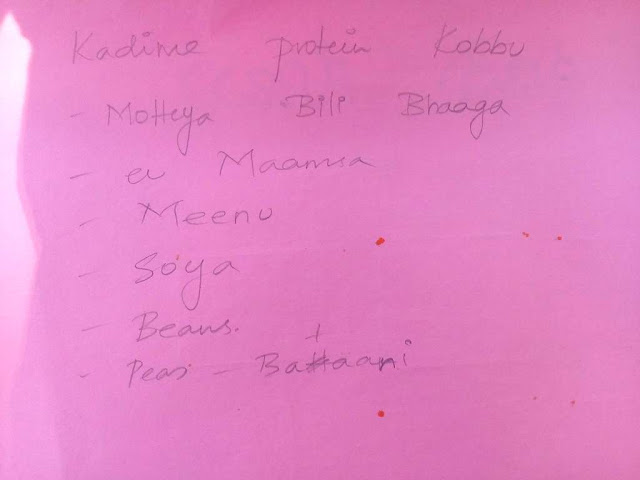 Kadime protein Kobbu
- Motteya Bili Bhaaga
- Maamsa
- Meenu
- Soya
- Beans.
- Peas - Battaani